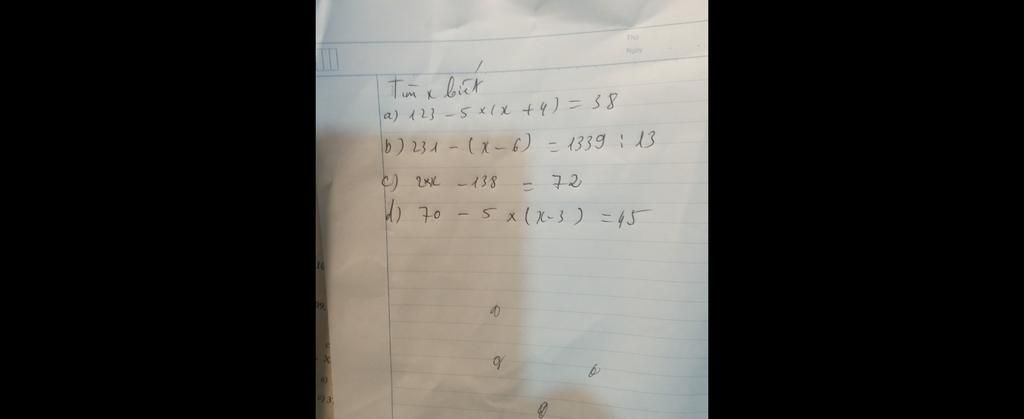 Thứ
Ngày
Tìm x biết
a) 123 - 5 × (x + 4) = 38
b) 231 - (x - 6) = 1339 : 13
c) 2×x - 138 = 72
d) 70 - 5 × (x - 3) = 45